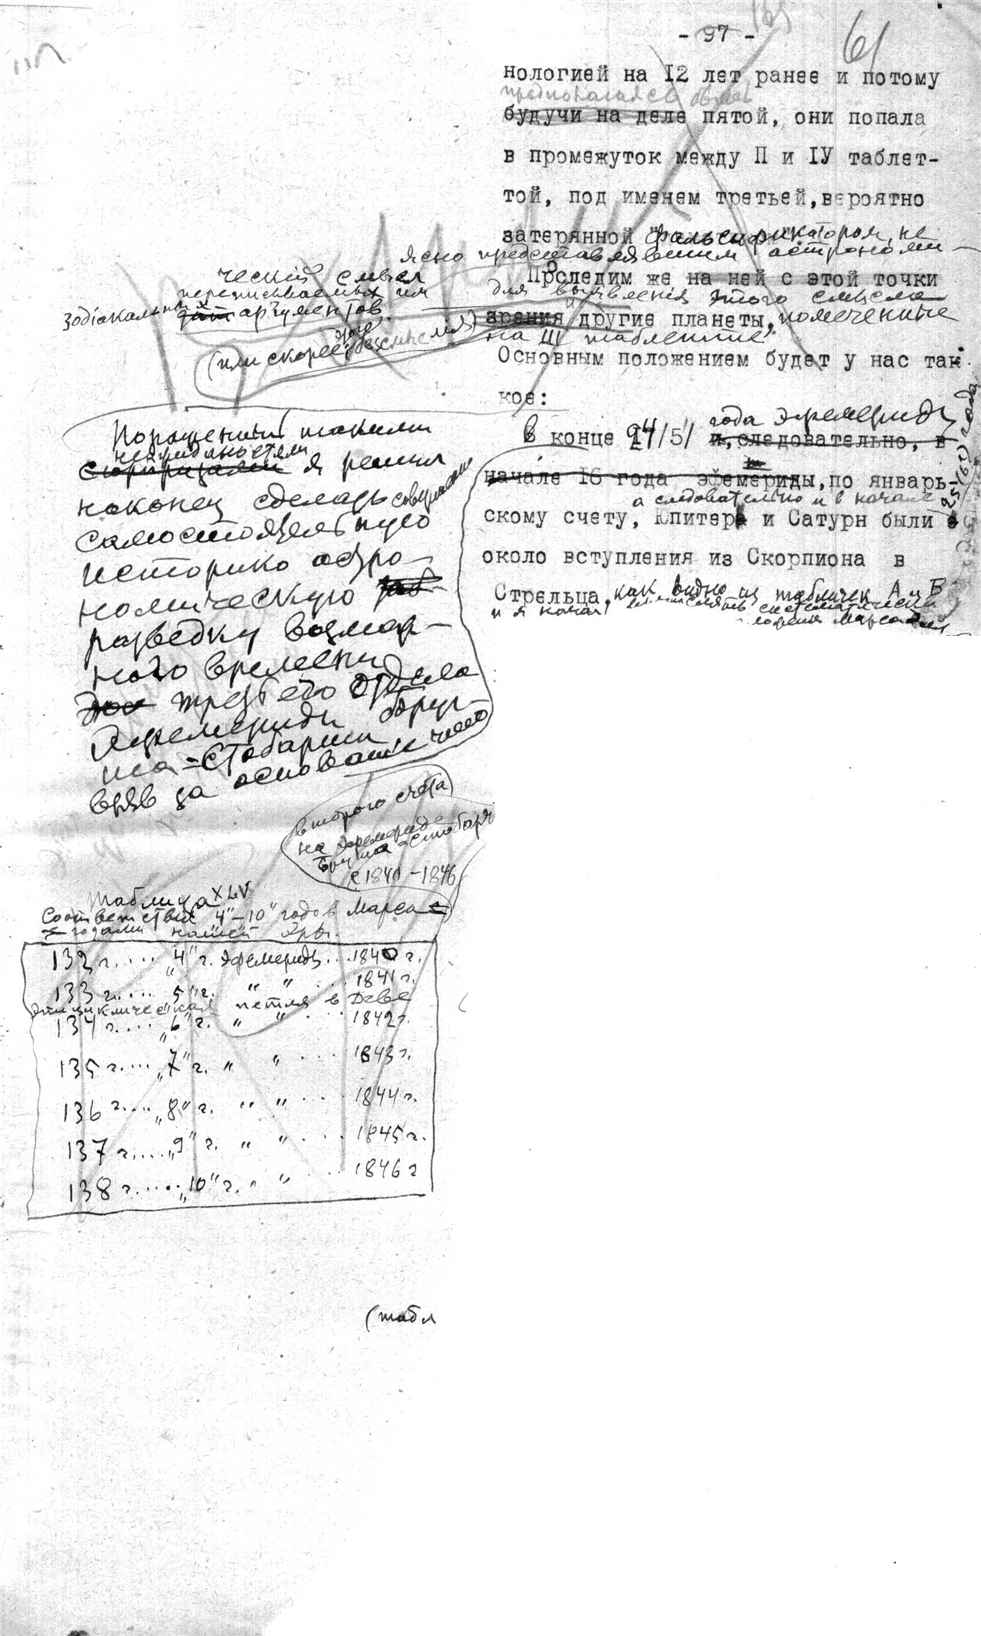 - 97 -
61
нологией на 12 лет ранее и потому
предполагаясь
будучи на деле пятой, они попала
в промежуток между II и IУ таблет-
той, под именем третьей, вероятно
затерянной фальсификатором, не
ясно представлявшим астрономи-
ческий смысл
переписываемых им
зодіакальных аргументов.
(или скорее, безсмыслия)
Проследим же на ней с этой точки
для выявленія этого смысла
зрения другие планеты, помеченные
на III таблетке.
Основным положением будет у нас так
кое:
В конце 94/5/ года эфемериды
и, следовательно, в
начале 16 года эфемериды, по январь-
а следовательно и в начале
95/6/ года
скому счету, Юпитер и Сатурн были
около вступления из Скорпиона в
Стрельца, как видно из табличек А и В
и я начал систематически
Марса
Пораженный такими
неожиданностями
сюрпризами я решил
наконец сделать совершенно
самостоятельную
историко астро-
номическую
разведку возмож-
ного времени
третьего отдела
Эфемериды Бруг-
ша-Стобарта
взяв за основание
второго счета
на эфемериде
Бругша-Стобарта
с 1840-1846
Таблица XLV
Соответствие "4"-10" годов Марса с
годами нашей эры.
132 г..... "4" г. эфемериды... 1840 г.
133 г..... "5" г. " " ... 1841 г.
эпициклическая петля в Деве
134 г.... "6" г. " " ... 1842 г.
135 г.... "7" г. " " .... 1843 г.
136 г.... "8" г. " " .... 1844 г.
137 г..... "9" г. " " .... 1845 г.
138 г..... "10" г. " " ... 1846 г
(табл